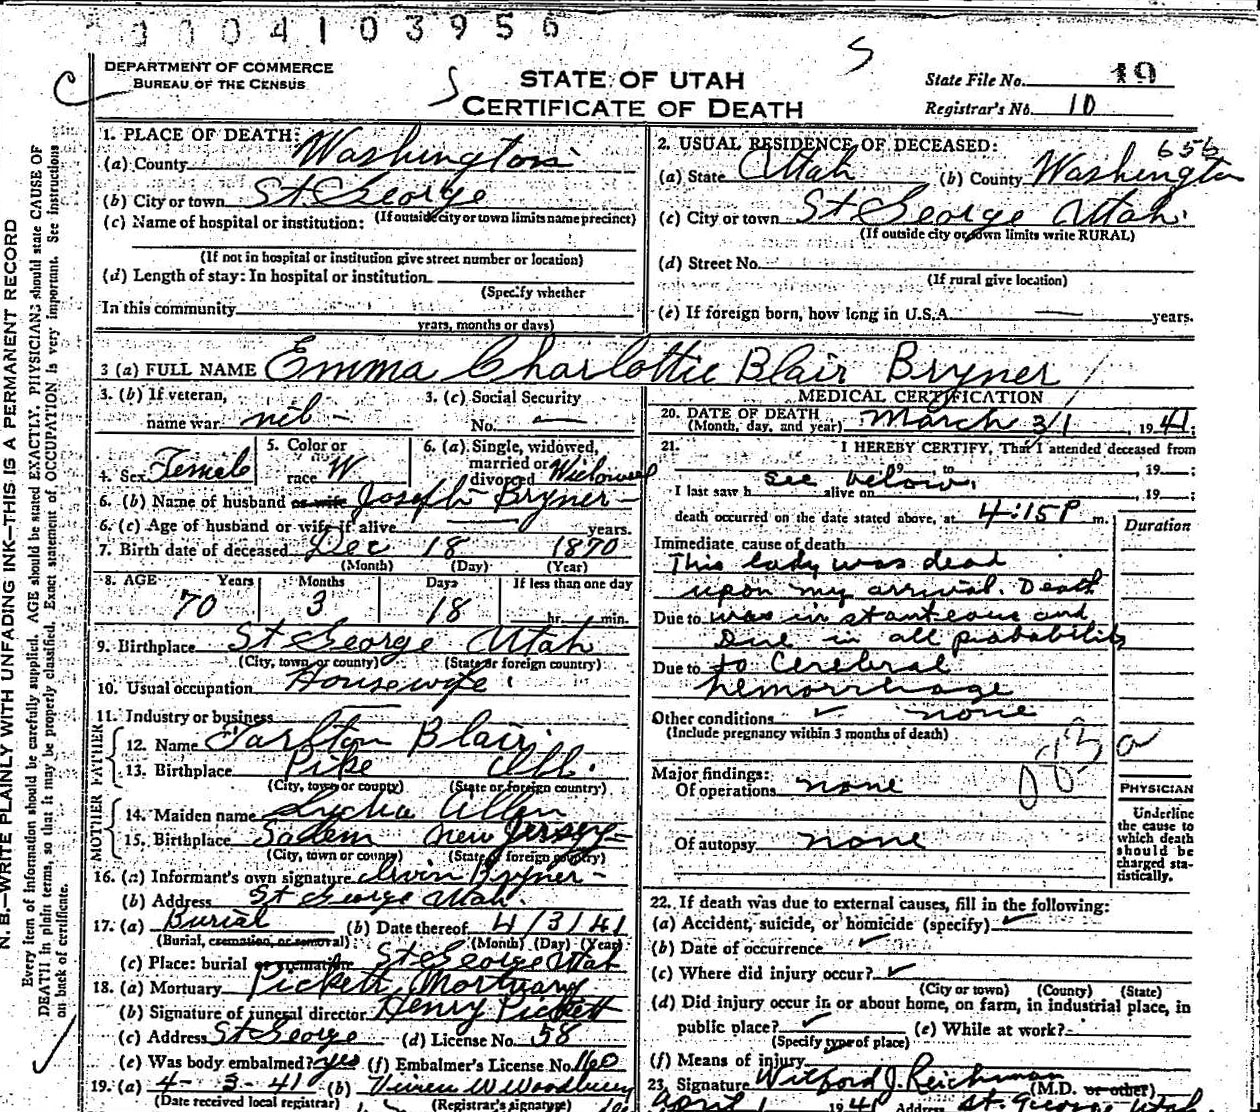 0004103956
DEPARTMENT OF COMMERCE
BUREAU OF THE CENSUS
STATE OF UTAH
CERTIFICATE OF DEATH
State File No. 19
Registrar's No. 10
N. B.—WRITE PLAINLY WITH UNFADING INK—THIS IS A PERMANENT RECORD
Every item of information should be carefully supplied. AGE should be stated EXACTLY. PHYSICIANS should state CAUSE OF
DEATH in plain terms, so that it may be properly classified. Exact statement of OCCUPATION is very important. See instructions
on back of certificate.
1. PLACE OF DEATH:
(a) County Washington
(b) City or town St George
(If outside city or town limits name precinct)
(c) Name of hospital or institution:
(If not in hospital or institution give street number or location)
(d) Length of stay: In hospital or institution
(Specify whether
In this community
years, months or days)
2. USUAL RESIDENCE OF DECEASED:
656
(a) State Utah (b) County Washington
(c) City or town St George Utah
(If outside city or town limits write RURAL)
(d) Street No.
(If rural give location)
(e) If foreign born, how long in U.S.A. — years.
3 (a) FULL NAME Emma Charlottie Blair Bryner
3. (b) If veteran,
name war nil -
3. (c) Social Security
No. —
4. Sex Female
5. Color or
race W
6. (a) Single, widowed,
married or
divorced Widowed
6. (b) Name of husband or wife Joseph Bryner
6. (c) Age of husband or wife if alive — years.
7. Birth date of deceased Dec 18 1870
(Month) (Day) (Year)
8. AGE Years Months Days If less than one day
70 3 18 hr. min.
9. Birthplace St George Utah
(City, town or county) (State or foreign country)
10. Usual occupation Housewife
11. Industry or business
FATHER
12. Name Tarlton Blair
13. Birthplace Pike Ill.
(City, town or county) (State or foreign country)
MOTHER
14. Maiden name Lydia Allen
15. Birthplace Salem New Jersey
(City, town or county) (State or foreign country)
16. (a) Informant's own signature Irvin Bryner
(b) Address St George Utah.
17. (a) Burial (b) Date thereof 4/3/41
(Burial, cremation, or removal) (Month) (Day) (Year)
(c) Place: burial or cremation St George Utah
18. (a) Mortuary Pickett Mortuary
(b) Signature of funeral director Henry Pickett
(c) Address St George (d) License No. 58
(e) Was body embalmed? yes (f) Embalmer's License No. 160
19. (a) 4-3-41 (b) W Woodbury
(Date received local registrar) (Registrar's signature)
MEDICAL CERTIFICATION
20. DATE OF DEATH
(Month, day, and year) March 31, 1941;
21. I HEREBY CERTIFY, That I attended deceased from
19 , to , 19 ;
I last saw h see below. alive on , 19 ;
death occurred on the date stated above, at 4:15 P m.
Duration
Immediate cause of death
This lady was dead
upon my arrival. Death
Due to was instanteous and
Due in all probability
Due to to Cerebral
hemorrhage
Other conditions none
(Include pregnancy within 3 months of death)
083 a
Major findings:
Of operations none
Of autopsy none
PHYSICIAN
Underline
the cause to
which death
should be
charged sta-
tistically.
22. If death was due to external causes, fill in the following:
(a) Accident, suicide, or homicide (specify)
(b) Date of occurrence
(c) Where did injury occur?
(City or town) (County) (State)
(d) Did injury occur in or about home, on farm, in industrial place, in
public place? (e) While at work?
(Specify type of place)
(f) Means of injury
23. Signature Wilford J. Reichman (M.D. or other)
April 1 1941 Address St. George Utah